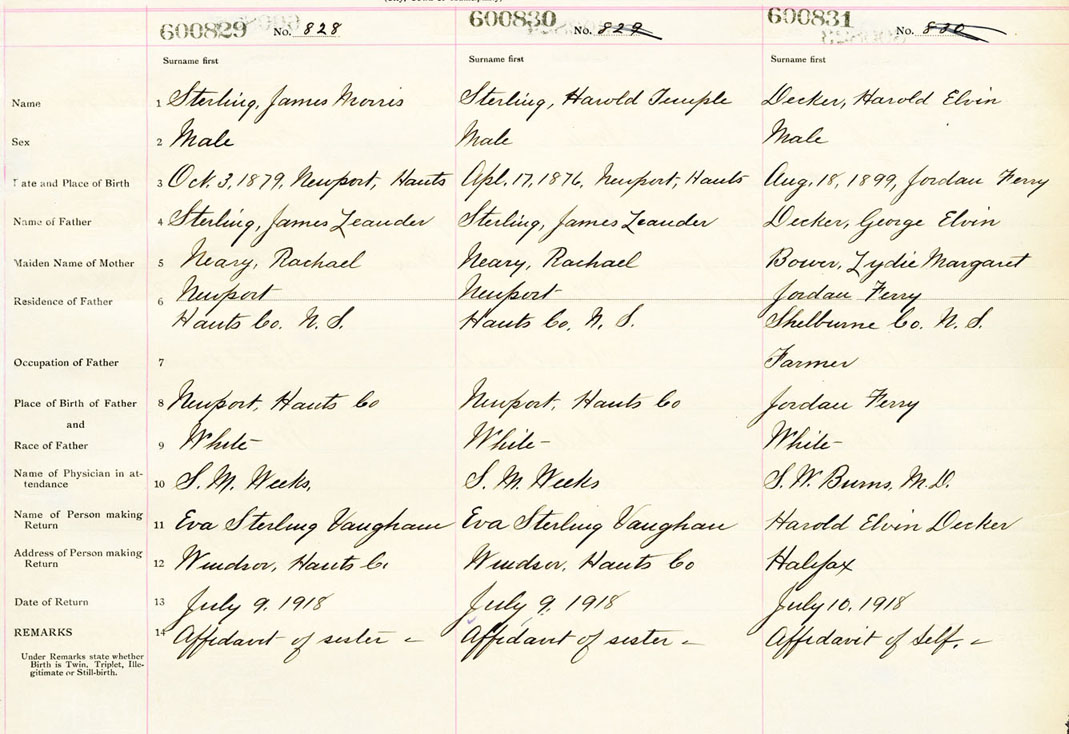 600829 No. 828 600830 No. 829 600831 No. 830
Surname first Surname first Surname first
Name 1 Sterling, James Morris Sterling, Harold Temple Decker, Harold Elvin
Sex 2 Male Male Male
Date and Place of Birth 3 Oct. 3, 1879, Newport, Hants Apl. 17, 1876, Newport, Hants Aug. 18, 1899, Jordan Ferry
Name of Father 4 Sterling, James Leander Sterling, James Leander Decker, George Elvin
Maiden Name of Mother 5 Neary, Rachael Neary, Rachael Bower, Lydie Margaret
Residence of Father 6 Newport Newport Jordan Ferry
Hants Co. N. S. Hants Co. N. S. Shelburne Co. N. S.
Occupation of Father 7 Farmer
Place of Birth of Father 8 Newport, Hants Co Newport, Hants Co Jordan Ferry
and
Race of Father 9 White White White
Name of Physician in at-
tendance 10 S. M. Weeks, S. M. Weeks S. W. Burns, M.D.
Name of Person making
Return 11 Eva Sterling Vaughan Eva Sterling Vaughan Harold Elvin Decker
Address of Person making
Return 12 Windsor, Hants Co Windsor, Hants Co Halifax
Date of Return 13 July 9, 1918 July 9, 1918 July 10, 1918
REMARKS 14 Affidavit of sister – Affidavit of sister – Affidavit of Self. –
Under Remarks state whether
Birth is Twin, Triplet, Ille-
gitimate or Still-birth.